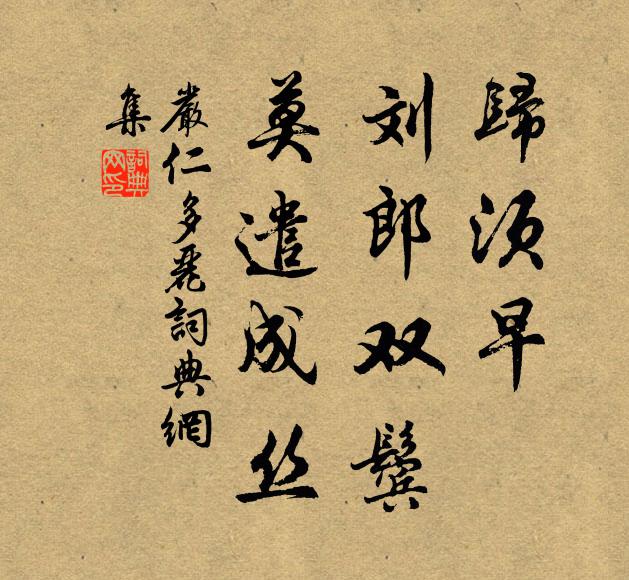 歸須早
刘郎双鬓
莫遣成丝
嚴仁多麗詞典網
集
詞典
网印